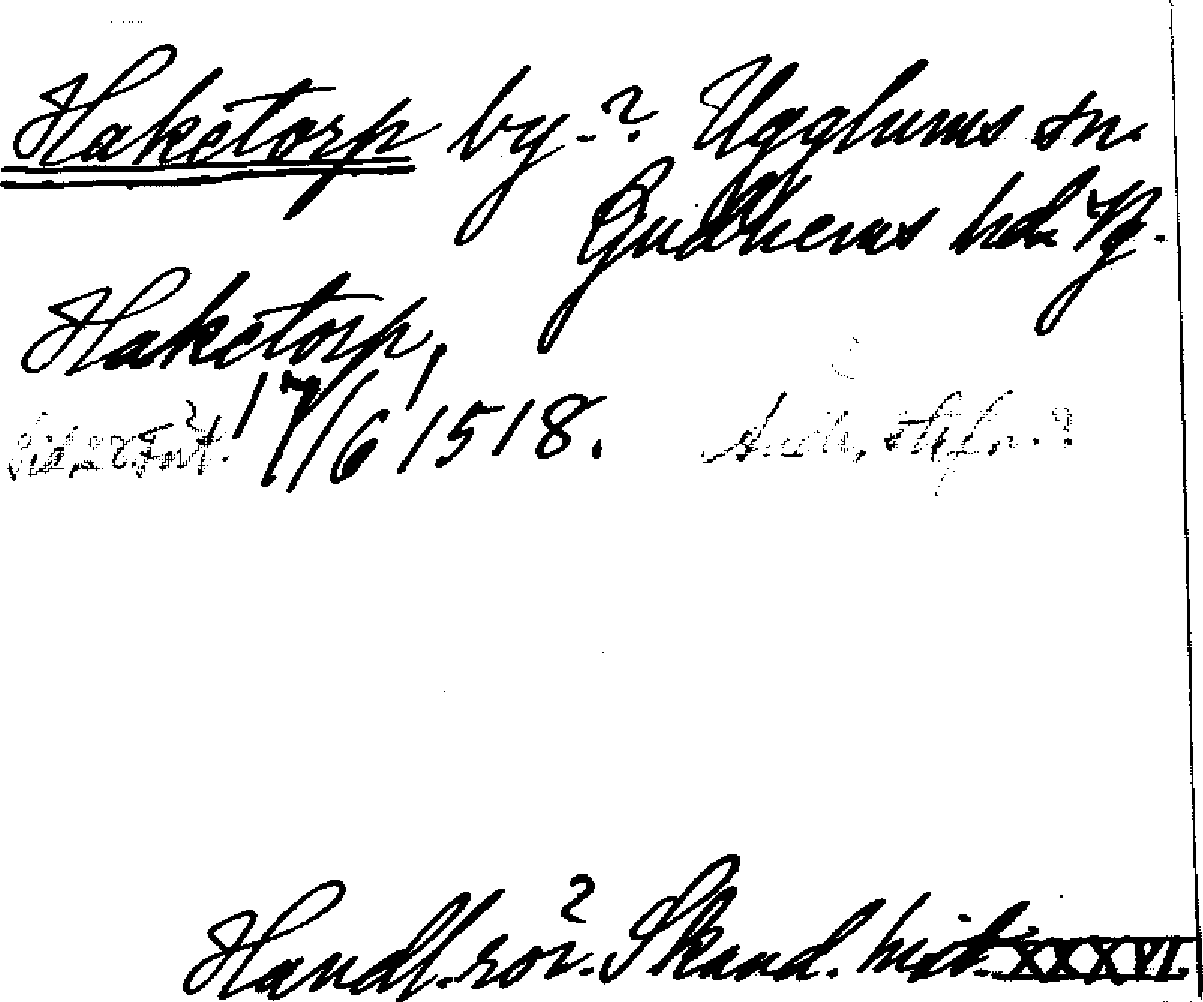 Haketorp by.? Ugglums sn.
Gudhems hd. Vg.
Haketorp,
17/6 1518.
Handl. rör. Skand. hist. XXXVI.